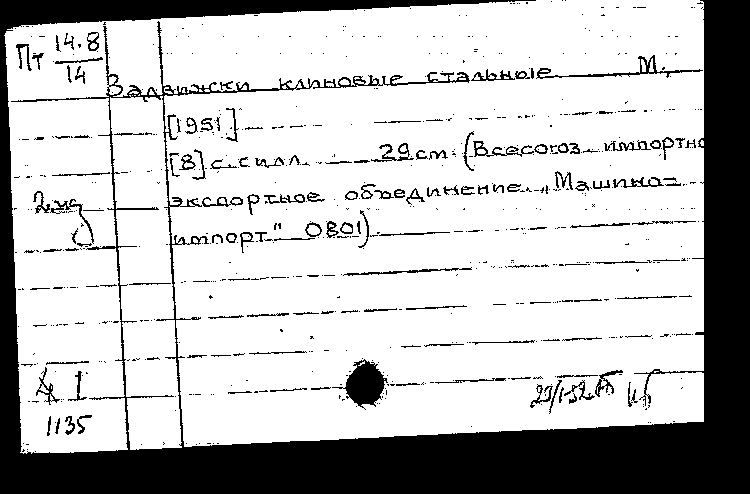 Пт 14.8
14
Задвижки клиновые стальные М.,
[1951]
[8] с. с илл. 29 см. (Всесоюз. импортно
экспортное объединение „Машино=
импорт" 0801).
2 изд
1
1135
29/I-52